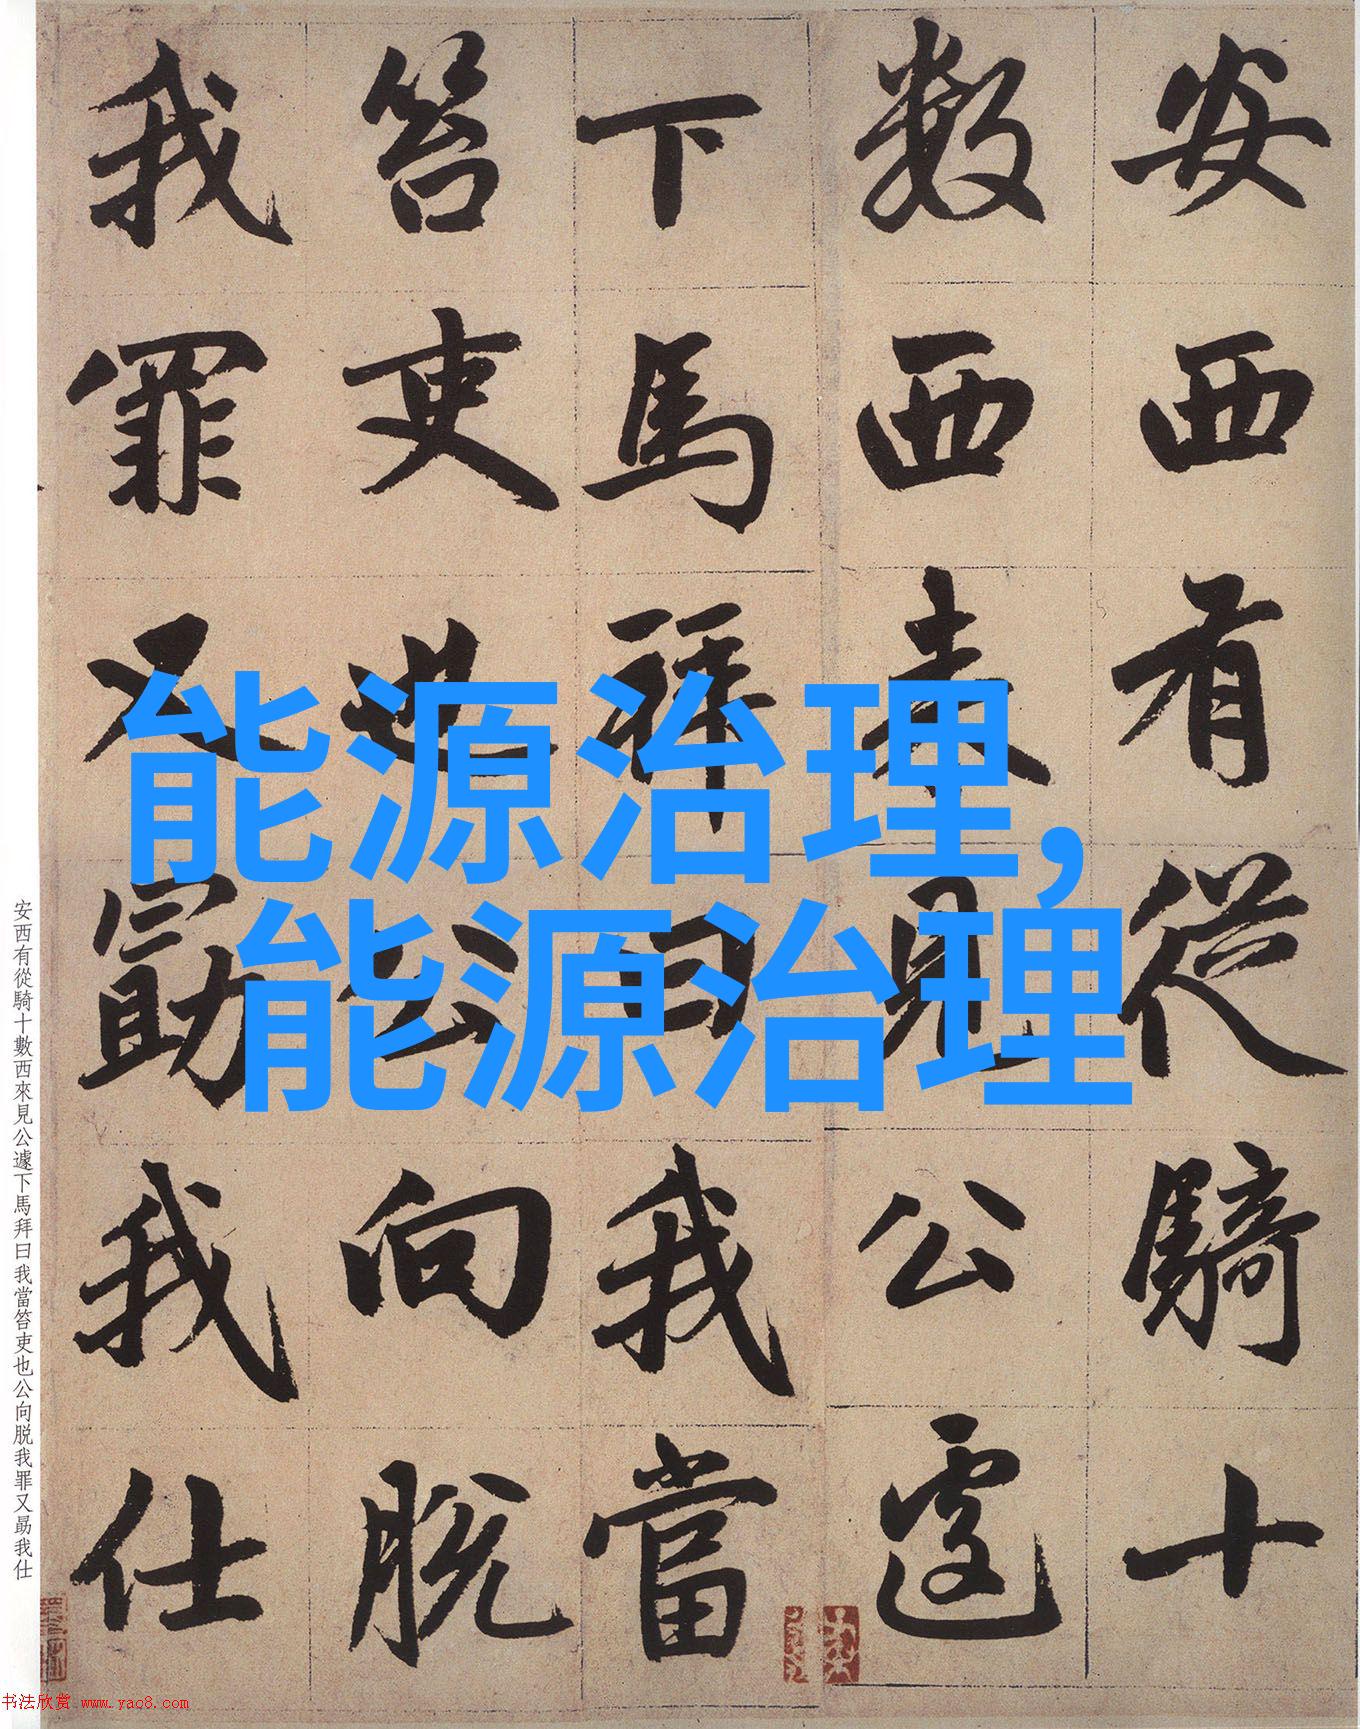 安西有從騎十
數西來見公遽
下馬拜曰我當
笞吏也公向脱
我罪又勗我仕
能源治理,
能源治理
安西有從騎十數西來見公遽下馬拜曰我當笞吏也公向脱我罪又勗我仕
书法欣赏 www.yac8.com